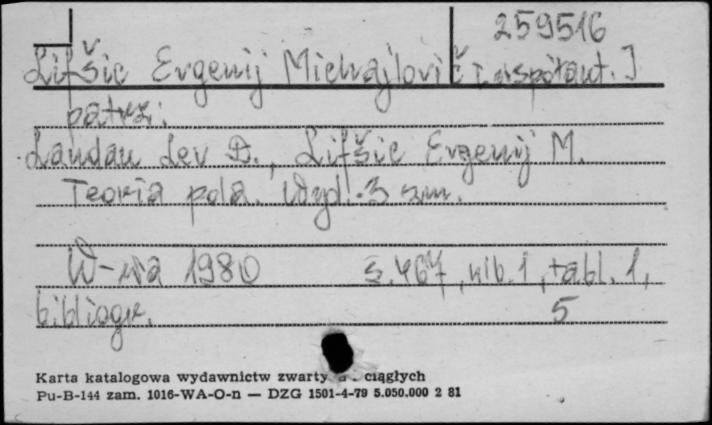 259516
Lifšic Evgenij Michajlovič [współaut.]
patrz:
Landau Lev D., Lifšic Evgenij M.
Teoria pola. Wyd. 3 zm.
W-wa 1980 s. 467, nlb. 1, tabl. 1,
bibliogr. 5
Karta katalogowa wydawnictw zwarty ciągłych
Pu-B-144 zam. 1016-WA-O-n — DZG 1501-4-79 5.050.000 2 81